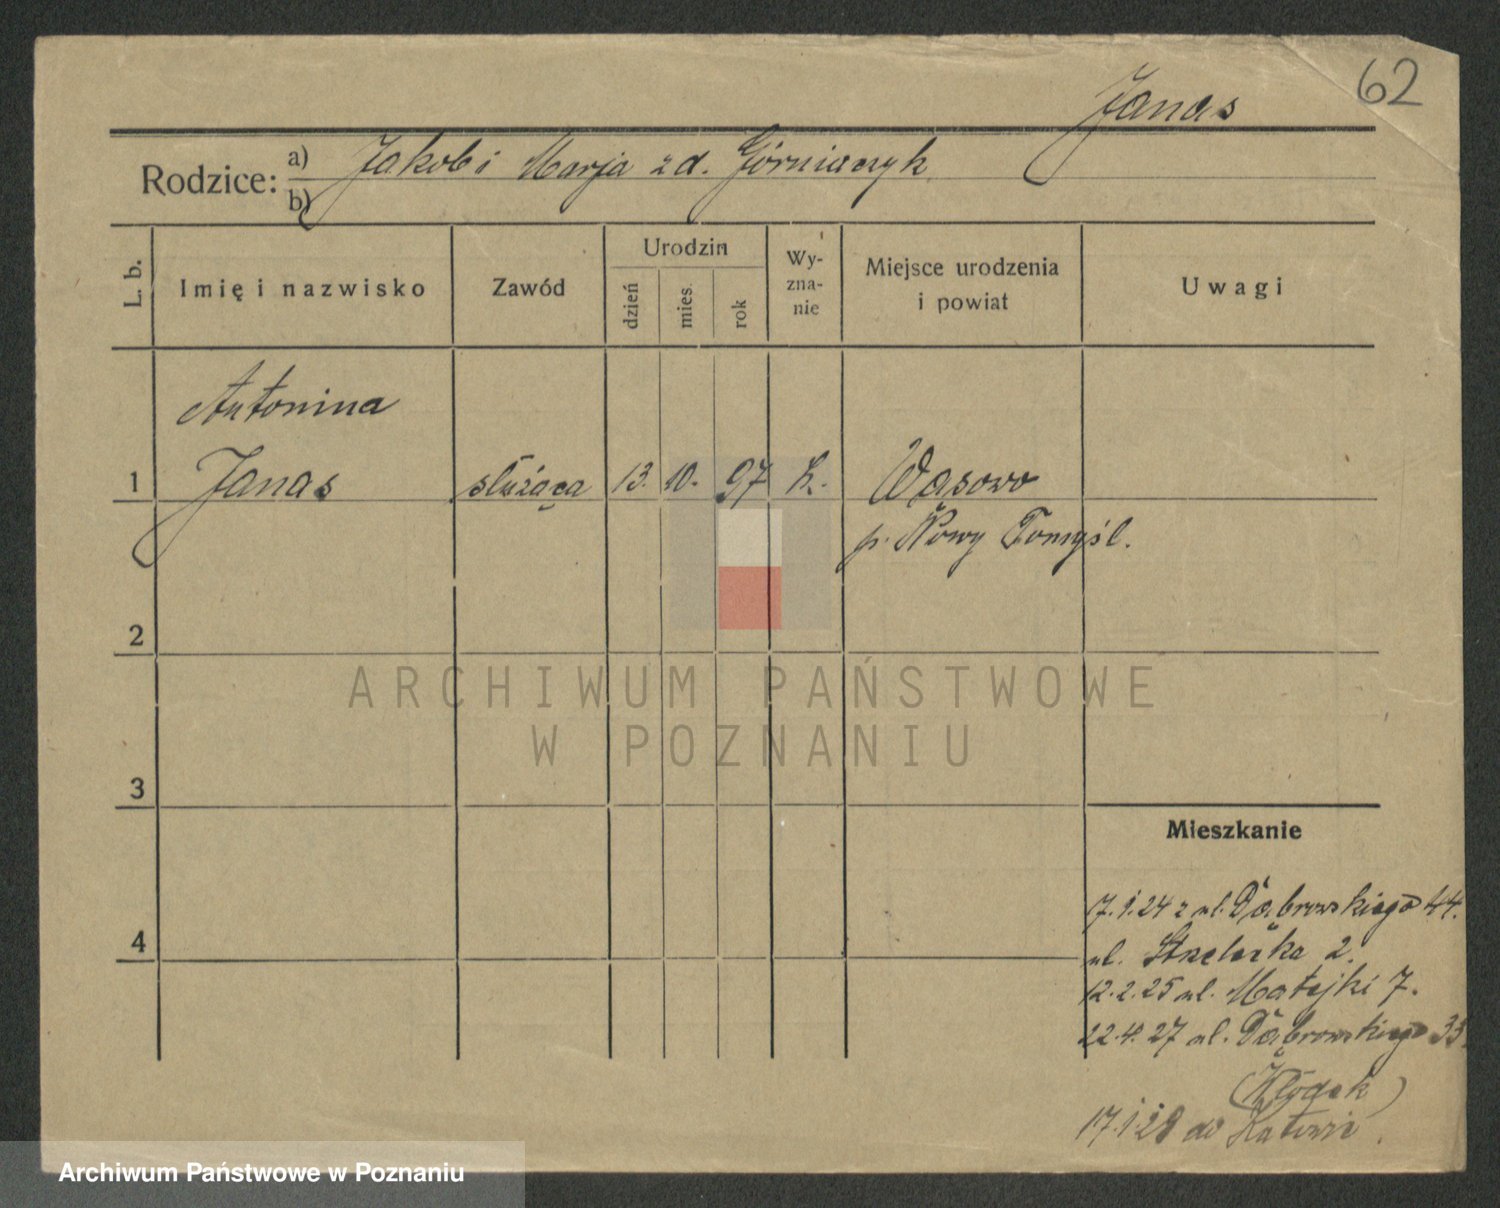 62
Janas
Rodzice: a) Jakob i Marja z d. Górniaczyk
b)
L. b.
Imię i nazwisko
Zawód
Urodzin
dzień
mies.
rok
Wy-
zna-
nie
Miejsce urodzenia
i powiat
Uwagi
Antonina
1 Janas służąca 13. 10. 97 k. Wąsowo
p. Nowy Tomyśl.
2
ARCHIWUM PAŃSTWOWE
W POZNANIU
3
Mieszkanie
17.1.24 z ul. Dąbrowskiego 44.
4
ul. Strzelecka 2.
12.2.25 ul. Matejki 7.
22.4.27 ul. Dąbrowskiego 35.
17.1.28 do
Archiwum Państwowe w Poznaniu